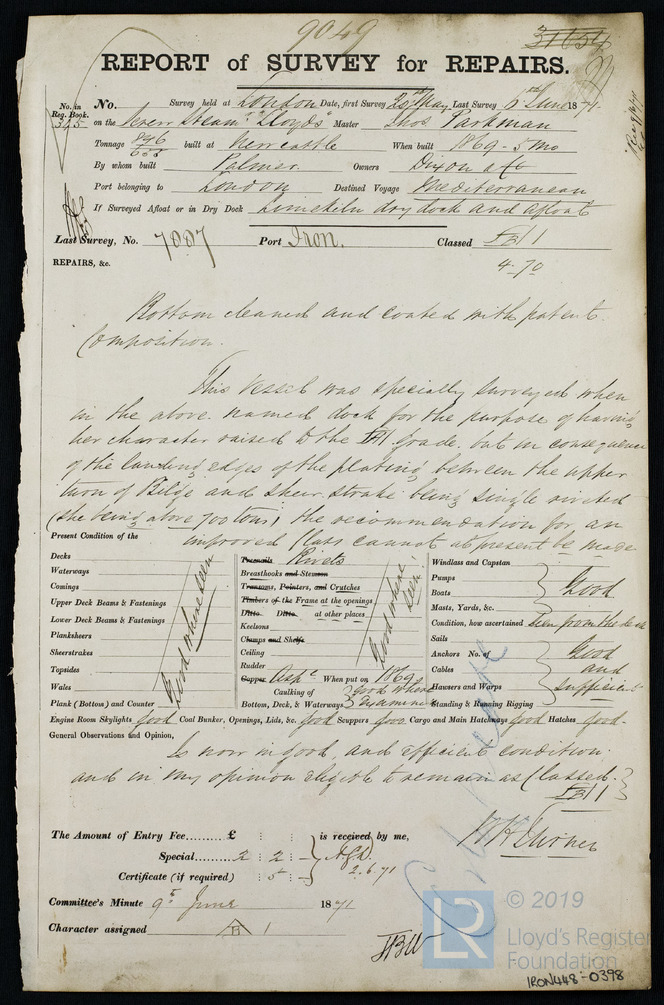 9049
31654
REPORT of SURVEY for REPAIRS.
No. in Reg. Book. 345
No. Survey held at London Date, first Survey 25th May Last Survey 6th June 1871.
on the Screw Steamr "Lloyds" Master Thos Parkman
Tonnage 846 built at Newcastle When built 1869 - 5 mo
By whom built Palmer. Owners Dixon & Co
Port belonging to London Destined Voyage Mediterranean
If Surveyed Afloat or in Dry Dock Limekiln dry dock and afloat
Last Survey, No. 7007 Port Iron. Classed B 1
4-70
REPAIRS, &c.
Bottom cleaned and coated with patent
Composition.
This Vessel was specially surveyed when
in the above named dock for the purpose of having
her character raised to the A 1 grade. but in consequence
of the landing edges of the plating between the upper
turn of Bilge and Sheer strake being single riveted
(she being above 700 tons) the recommendation for an
improved Class cannot at present be made
Present Condition of the
Decks
Waterways
Comings
Upper Deck Beams & Fastenings
Lower Deck Beams & Fastenings
Planksheers
Sheerstrakes
Topsides
Wales
Plank (Bottom) and Counter
Good where seen
Treenails Rivets
Breasthooks and Stemson
Transoms, Pointers, and Crutches
Timbers of the Frame at the openings
Ditto Ditto at other places
Keelsons
Clamps and Shelfs
Ceiling
Rudder
Copper Aspc When put on 1869
Caulking of Bottom, Deck, & Waterways good where examined
Good where seen
Windlass and Capstan
Pumps
Boats
Masts, Yards, &c.
Good
Condition, how ascertained seen from the deck
Sails
Anchors No. of
Cables
Hawsers and Warps
Good and sufficient
Standing & Running Rigging
Engine Room Skylights good Coal Bunker, Openings, Lids, &c. good Scuppers good Cargo and Main Hatchways good Hatches good.
General Observations and Opinion,
Is now in good, and efficient condition.
and in my opinion eligible to remain as Classed.
B 1
The Amount of Entry Fee...... £ : : is received by me,
Special...... 2 : 2 : -
Certificate (if required) : 5 : -
2.6.71
Committee's Minute 9th June 1871
Character assigned B 1
© 2019
LR
Lloyd's Register
Foundation
IRON448-0398